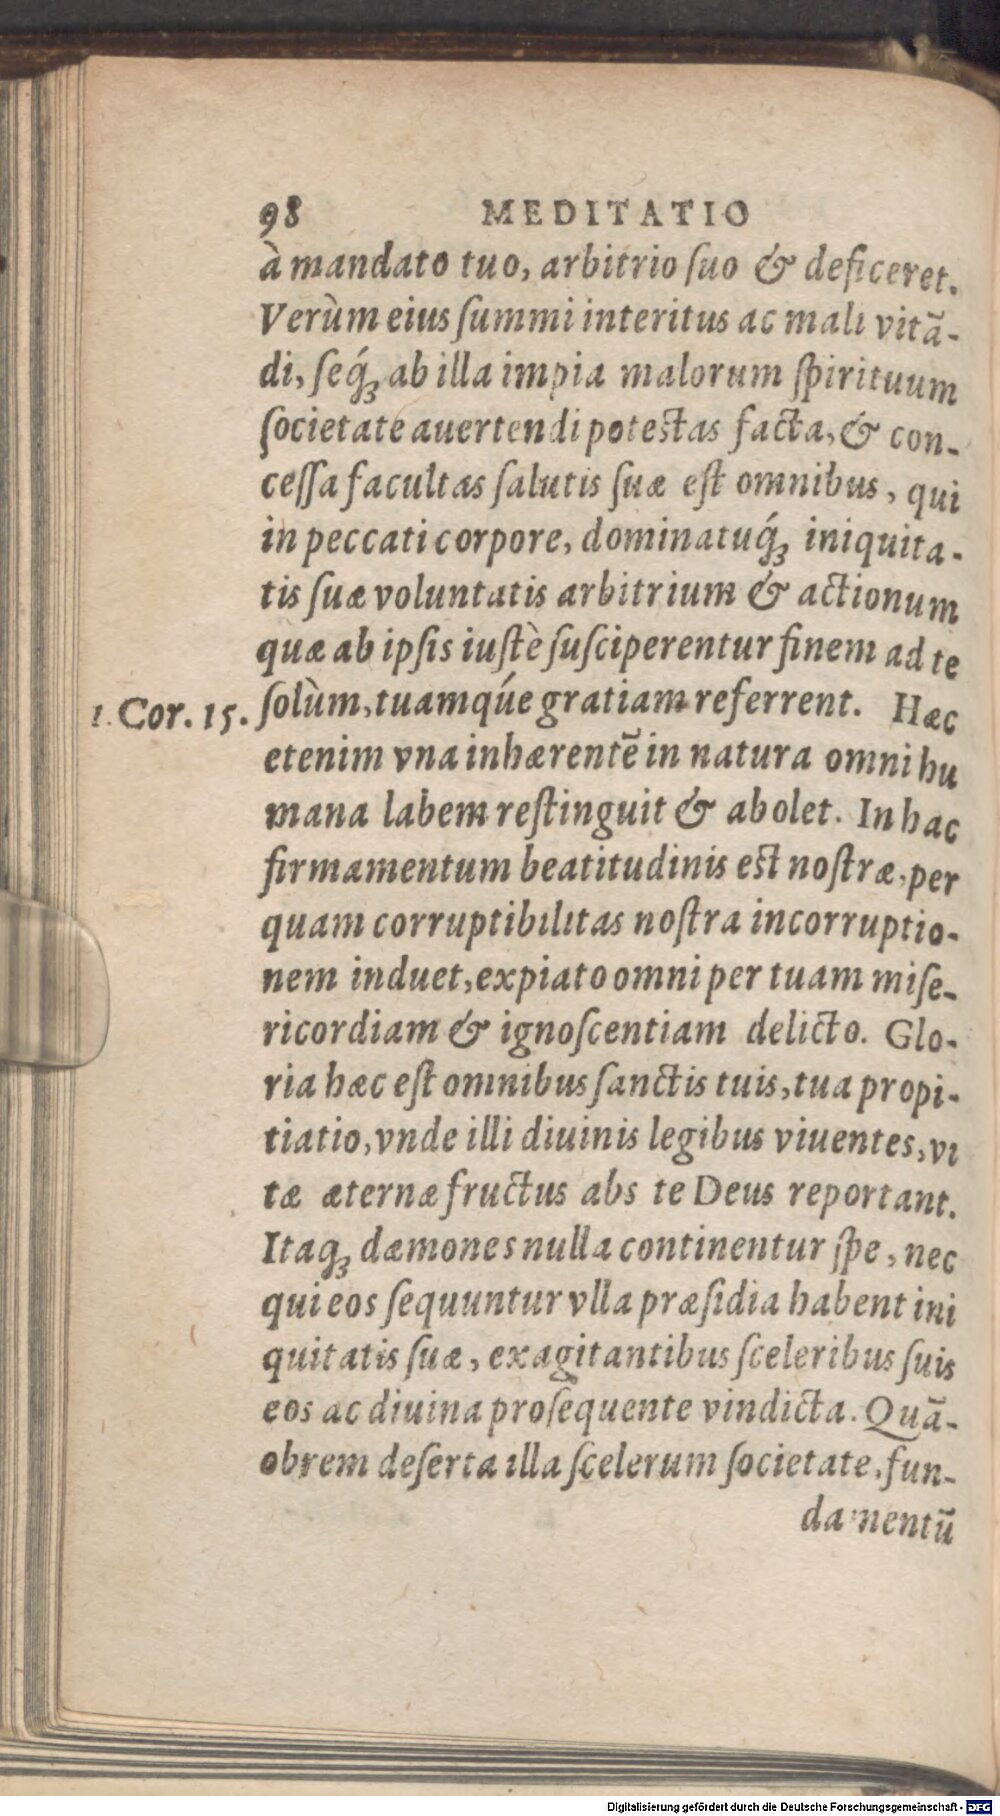 98 MEDITATIO
à mandato tuo, arbitrio ſuo & deficeret.
Verùm eius ſummi interitus ac mali vitā-
di, ſeq́ꝫ ab illa impia malorum ſpirituum
ſocietate auertendi poteſtas facta, & con-
ceſſa facultas ſalutis ſuæ eſt omnibus, qui
in peccati corpore, dominatuq́ꝫ iniquita-
tis ſuæ voluntatis arbitrium & actionum
quæ ab ipſis iuſtè ſuſciperentur finem ad te
1. Cor. 15. ſolùm, tuamqúe gratiam referrent. Hæc
etenim vna inhærentē in natura omni hu
mana labem reſtinguit & abolet. In hac
firmamentum beatitudinis eſt noſtræ, per
quam corruptibilitas noſtra incorruptio-
nem induet, expiato omni per tuam miſe-
ricordiam & ignoſcentiam delicto. Glo-
ria hæc eſt omnibus ſanctis tuis, tua propi-
tiatio, vnde illi diuinis legibus viuentes, vi
tæ æternæ fructus abs te Deus reportant.
Itaqꝫ dæmones nulla continentur ſpe, nec
qui eos ſequuntur vlla præſidia habent ini
quitatis ſuæ, exagitantibus ſceleribus ſuis
eos ac diuina proſequente vindicta. Quā-
obrem deſerta illa ſcelerum ſocietate, fun-
damentū
Digitalisierung gefördert durch die Deutsche Forschungsgemeinschaft - DFG